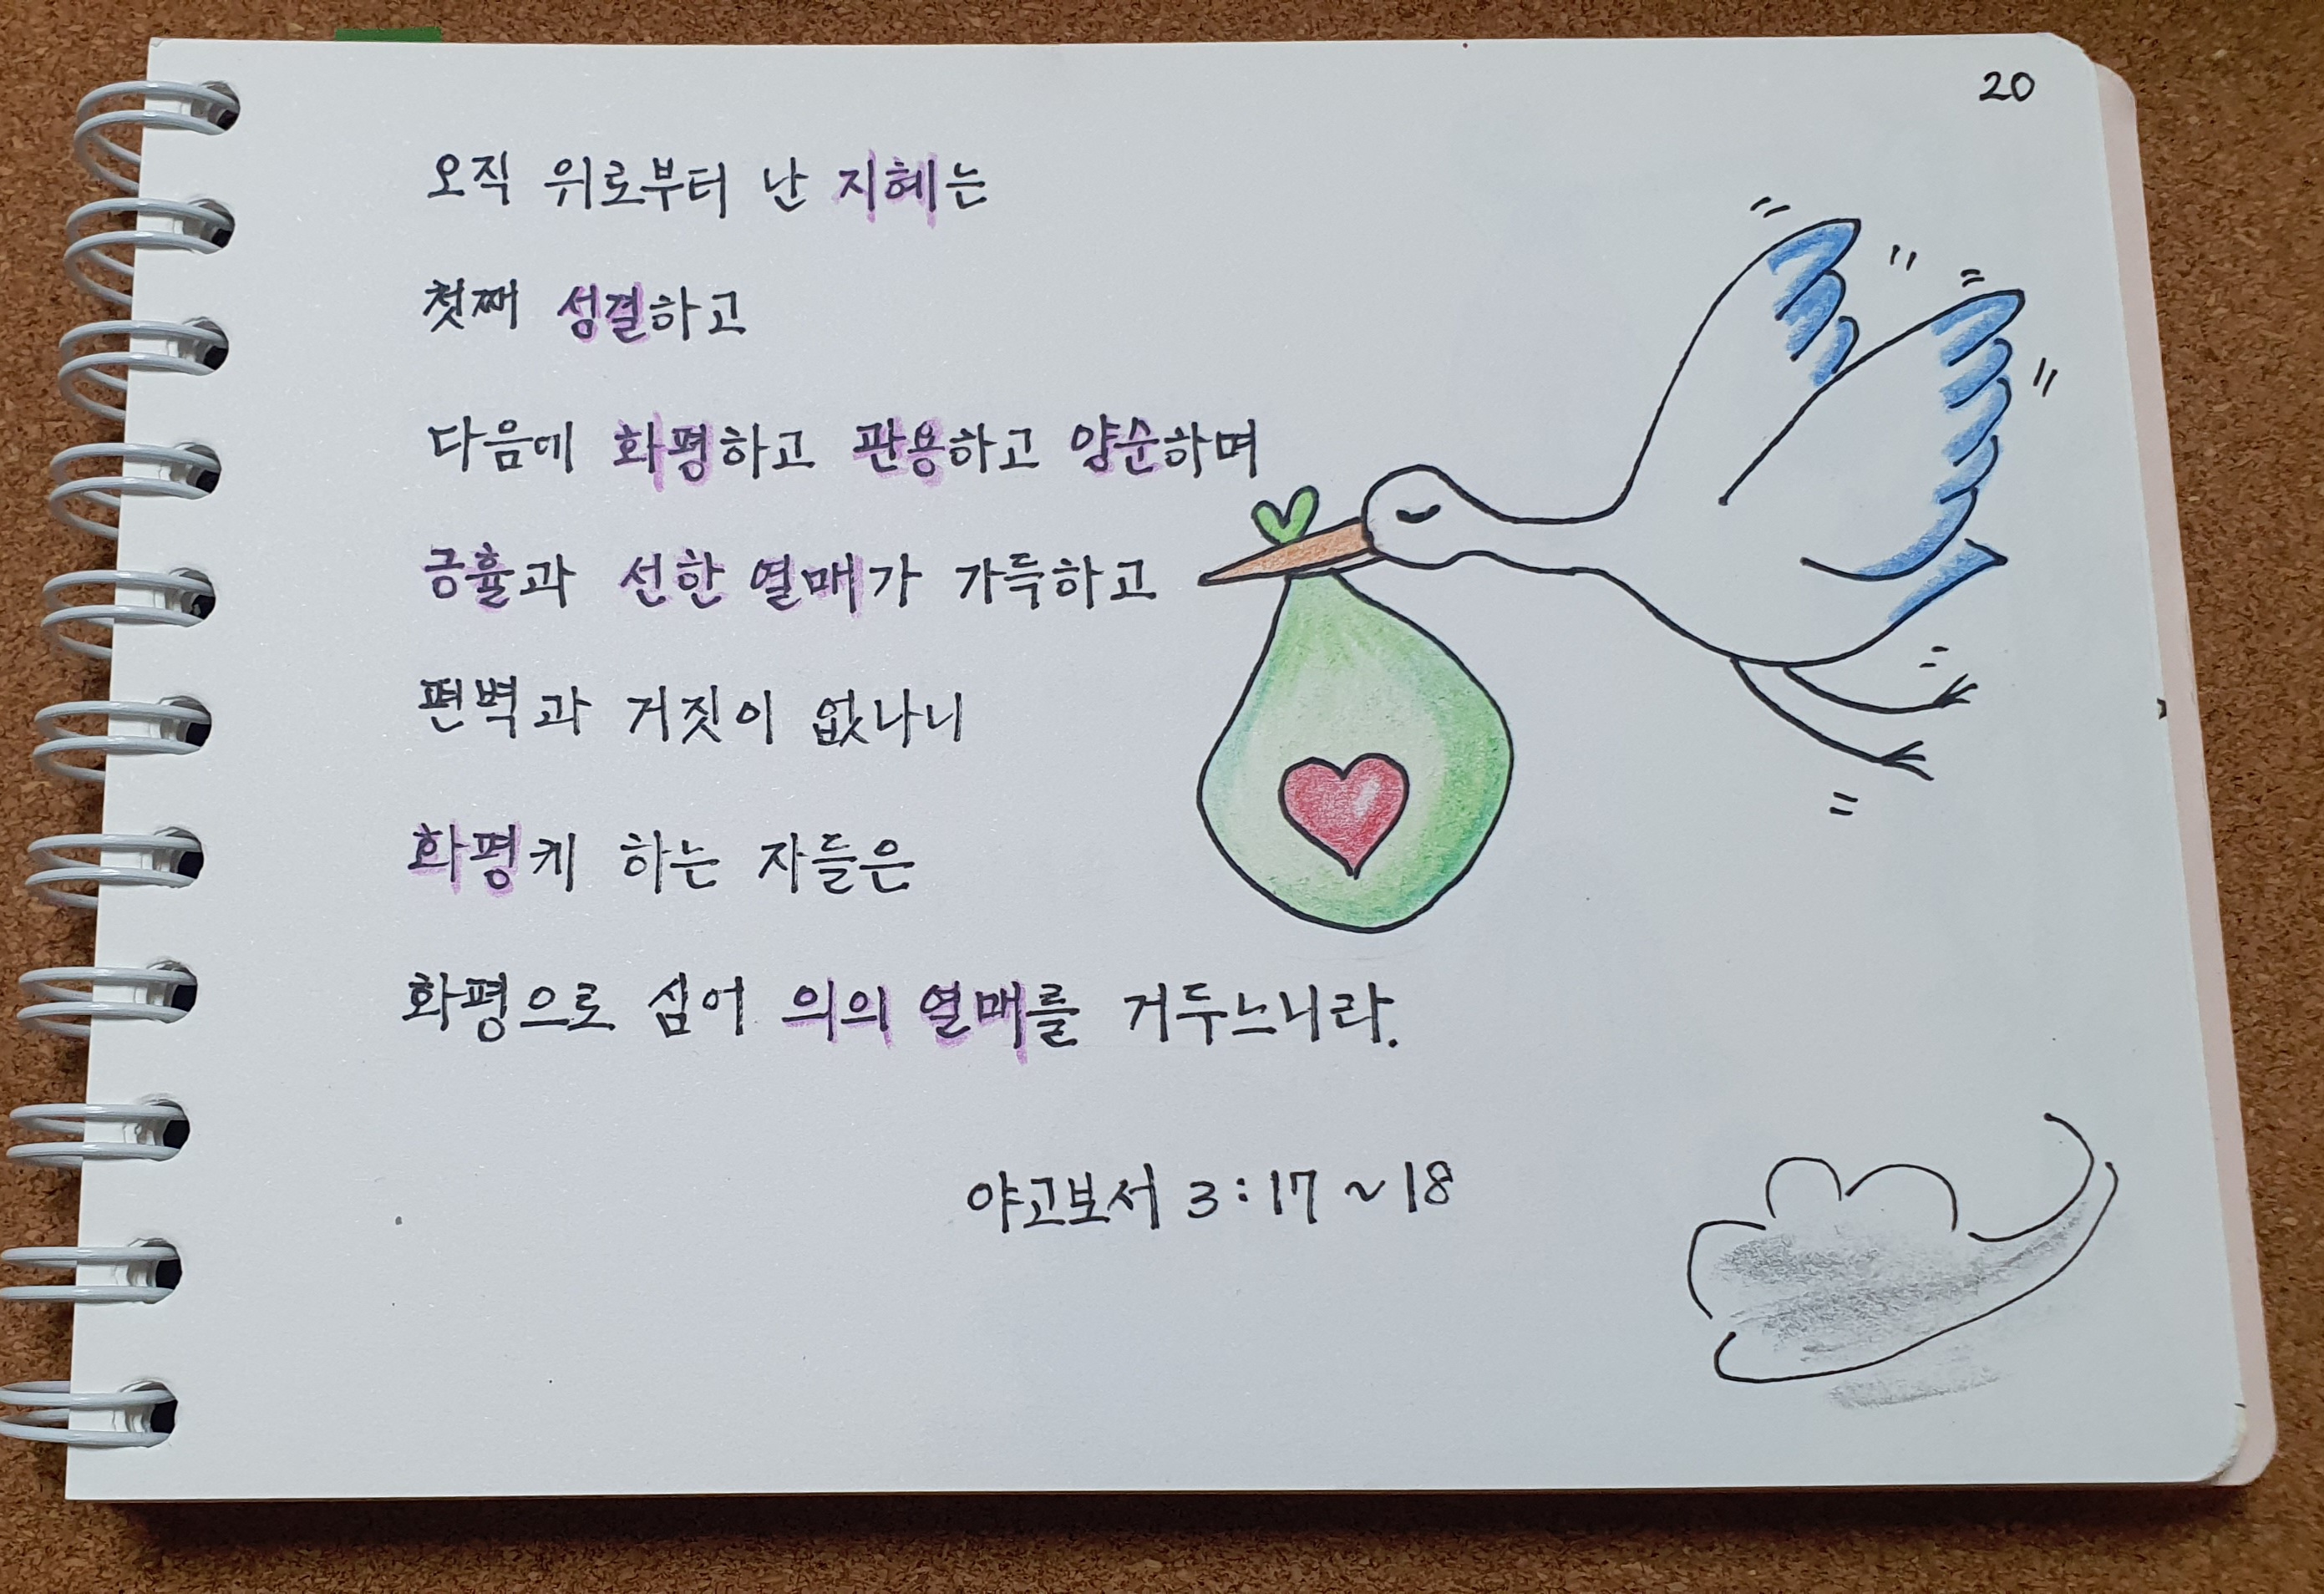 20
오직 위로부터 난 지혜는
첫째 성결하고
다음에 화평하고 관용하고 양순하며
긍휼과 선한 열매가 가득하고
편벽과 거짓이 없나니
화평케 하는 자들은
화평으로 심어 의의 열매를 거두느니라.
야고보서 3:17~18